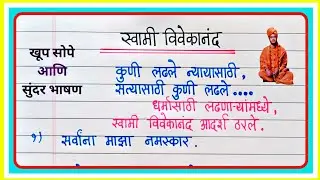 स्वामी विवेकानंद
खूप सोपे
आणि
सुंदर भाषण
कुणी लढले न्यायासाठी,
सत्यासाठी कुणी लढले....
धर्मासाठी लढणाऱ्यांमध्ये,
स्वामी विवेकानंद आदर्श ठरले.
१) सर्वांना माझा नमस्कार.